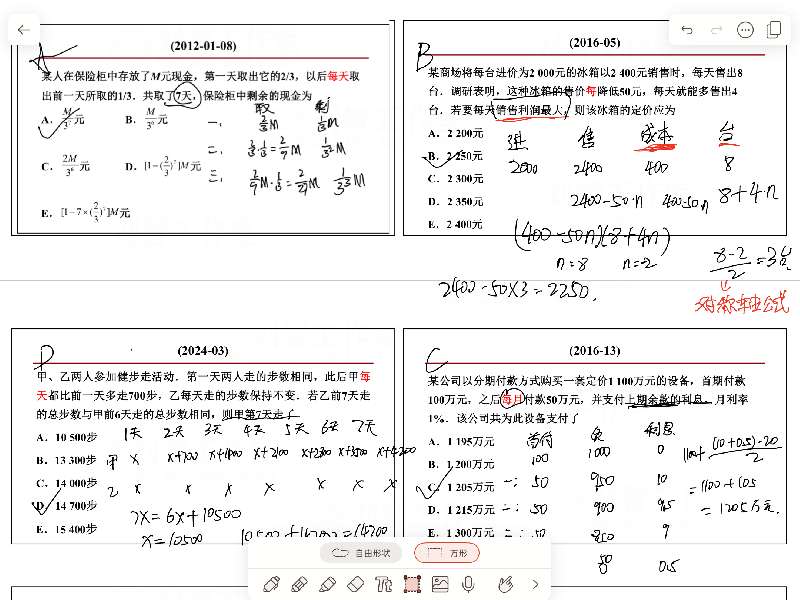 (2012-01-08)
A
某人在保险柜中存放了M元现金，第一天取出它的2/3，以后每天取
出前一天所取的1/3，共取了7天，保险柜中剩余的现金为
取 剩
A. M/3⁷元 B. M/3⁶元
一、 2/3M 1/3M
二、 2/3·1/3=2/9M 1/3²M
C. 2M/3⁶元 D. [1-(2/3)⁷]M元
三、 2/9M·1/3=2/27M 1/3³M
E. [1-7×(2/3)⁷]M元
(2016-05)
B
某商场将每台进价为2 000元的冰箱以2 400元销售时，每天售出8
台．调研表明，这种冰箱的售价每降低50元，每天就能多售出4
台．若要每天销售利润最大，则该冰箱的定价应为
A. 2 200元
进 售 成本 台
B. 2 250元
2000 2400 400 8
C. 2 300元
D. 2 350元
2400-50·n 400-50n 8+4·n
E. 2 400元
(400-50n)(8+4n)
n=8 n=-2
8-2/2=3台
2400-50×3=2250.
对称轴公式
(2024-03)
D
甲、乙两人参加健步走活动．第一天两人走的步数相同，此后甲每
天都比前一天多走700步，乙每天走的步数保持不变．若乙前7天走
的总步数与甲前6天走的总步数相同，则甲第7天走了
A. 10 500步
1天 2天 3天 4天 5天 6天 7天
B. 13 300步
甲 x x+700 x+1400 x+2100 x+2800 x+3500 x+4200
C. 14 000步
乙 x x x x x x x
D. 14 700步
7x=6x+10500
E. 15 400步
x=10500 10500+4200=14700
(2016-13)
C
某公司以分期付款方式购买一套定价1 100万元的设备，首期付款
100万元，之后每月付款50万元，并支付上期余款的利息，月利率
1%．该公司共为此设备支付了
A. 1 195万元
首付 欠 利息
100 1000 0
1100+(10+0.5)·20/2
B. 1 200万元
C. 1 205万元
一: 50 950 10
=1100+105
D. 1 215万元
二: 50 900 9.5
=1205万元.
E. 1 300万元
三: 50 850 9
50
0 0.5
自由形状 方形